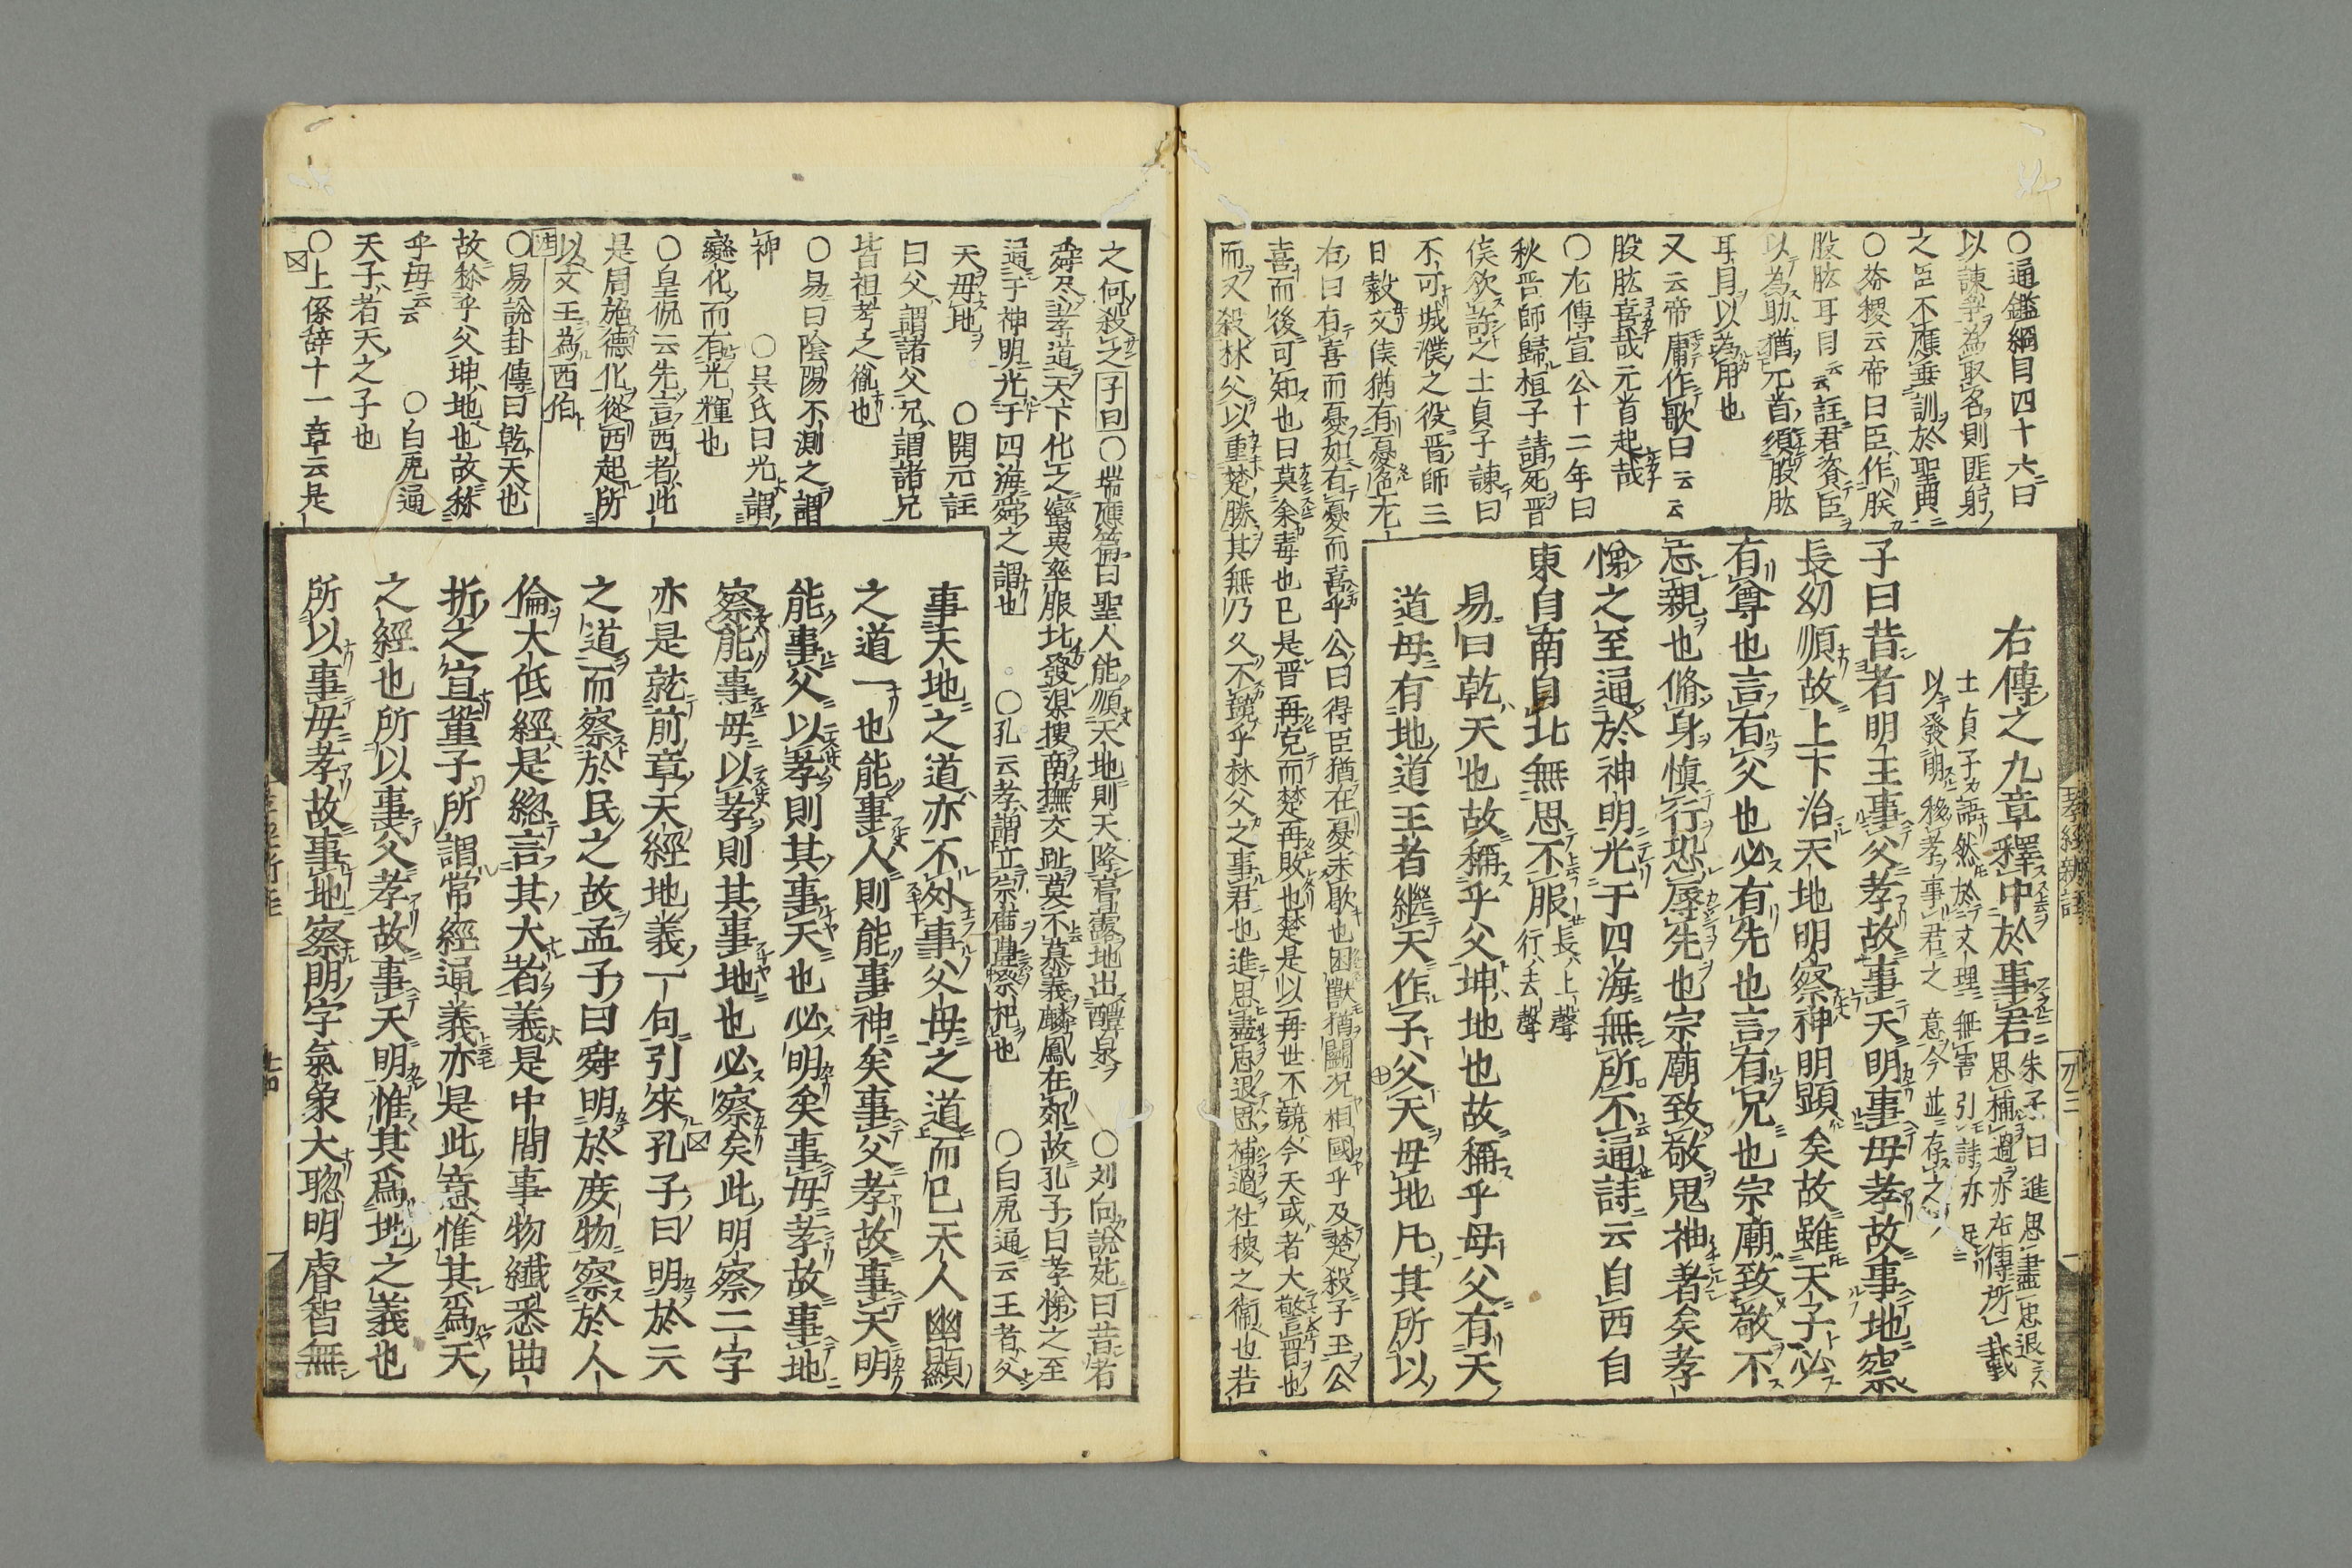 ○通鑑綱目四十六曰
以諫爭為取名則匪躬
之臣不應垂訓於聖典
○益稷云帝曰臣作朕
股肱耳目云云註君資臣
以為助猶元首須股肱
耳目以為用也
又云帝庸作歌曰云云
股肱喜哉元首起哉
○左傳宣公十二年曰
秋晋師歸桓子請死晋
侯欲許之士貞子諫曰
不可城濮之役晋師三
日穀文侯猶有憂色左
右曰有喜而憂如有憂而喜乎公曰得臣猶在憂未歇也困獸猶闘况相國乎及楚殺子玉公
喜而後可知也曰莫余毒也已是晋再克而楚再敗也楚是以再世不競今天或者大警晋也
而又殺林父以重楚勝其無乃久不競乎林父之事君也進思盡忠退思補過社稷之衛也若
右傳之九章釋中於事君
朱子曰進思盡忠退
思補過亦左傳所載
士貞子語然於文理無害引詩亦足
以發明移孝事君之意今並存之
子曰昔者明王事父孝故事天明事母孝故事地察
長幼順故上下治天地明察神明顕矣故雖天子必
有尊也言有父也必有先也言有兄也宗廟致敬不
忘親也脩身慎行恐辱先也宗廟致敬鬼神著矣孝
悌之至通於神明光于四海無所不通詩云自西自
東自南自北無思不服
長上聲
行去聲
易曰乾天也故稱乎父坤地也故稱乎母父有天
道母有地道王者繼天作子父天母地凡其所以
孝經新註
之何殺之
子曰
○瑞應篇曰聖人能順天地則天降膏露地出醴泉
○刘向說苑曰昔者
舜以孝道天下化之蠻夷率服北發渠搜南撫交趾莫不慕義麟鳳在郊故孔子曰孝悌之至
通于神明光于四海舜之謂也
○孔云孝謂立宗廟豊祭祀也
○白虎通云王者父
天母地
○開元註
曰父謂諸父兄謂諸兄
皆祖考之胤也
○易曰陰陽不測之謂
神
○吴氏曰光謂
變化而有光輝也
○皇侃云先言西者此
是周施德化從西起所
以文王為西伯
○易說卦傳曰乾天也
故稱乎父坤地也故稱
乎母云云
○白虎通
天子者天之子也
○上係辞十一章云是
事天地之道亦不外事父母之道而已天人幽顯
之道一也能事人則能事神矣事父孝故事天明
能事父以孝則其事天也必明矣事母孝故事地
察能事母以孝則其事地也必察矣此明察二字
亦是就前章天經地義一句引來孔子曰明於天
之道而察於民之故孟子曰舜明於庶物察於人
倫大低經是總言其大者義是中間事物纎悉曲
折之宜董子所謂常經通義亦是此意惟其為天
之經也所以事父孝故事天明惟其為地之義也
所以事母孝故事地察明字氣象大聰明睿智無